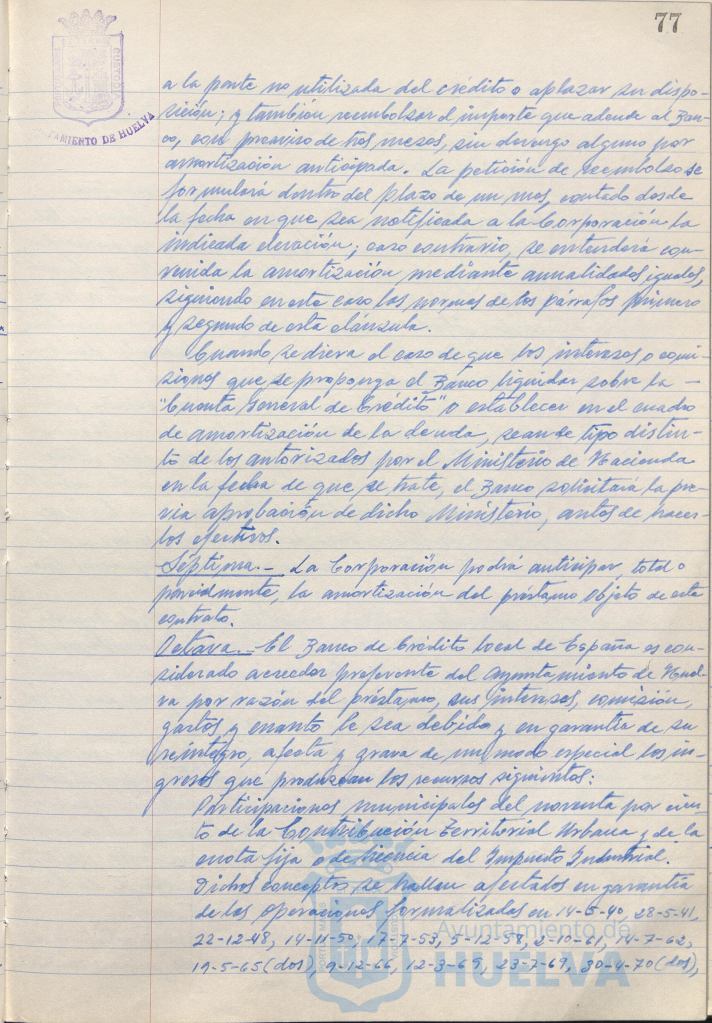 77
CUSTODI
AYUNTAMIENTO DE HUELVA
a la parte no utilizada del crédito o aplazar su dispo-
sición; y tambien reembolsar el importe que adeude al Ban-
co, con preaviso de tres meses, sin devengo alguno por
amortización anticipada. La petición de reembolso se
formulará dentro del plazo de un mes, contado desde
la fecha en que sea notificada a la Corporación la
indicada elevación; caso contrario, se entenderá con-
venida la amortización mediante anualidades iguales,
siguiendo en este caso las normas de los párrafos primero
y segundo de esta cláusula.
Cuando se diera el caso de que los intereses o comi-
siones que se proponga el Banco liquidar sobre la —
"Cuenta General de Crédito" o establecer en el cuadro
de amortización de la deuda, sean de tipo distin-
to de los autorizados por el Ministerio de Hacienda
en la fecha de que se trate, el Banco solicitará la pre-
via aprobación de dicho Ministerio, antes de hacer-
los efectivos.
Séptima.- La Corporación podrá anticipar, total o
parcialmente, la amortización del préstamo objeto de este
contrato.
Octava.- El Banco de Crédito Local de España es con-
siderado acreedor preferente del Ayuntamiento de Huel-
va por razón del préstamo, sus intereses, comisión,
gastos y cuanto le sea debido y en garantía de su
reintegro, afecta y grava de un modo especial los in-
gresos que produzcan los recursos siguientes:
Participaciones municipales del noventa por cien-
to de la Contribución Territorial Urbana y de la
cuota fija o de licencia del Impuesto Industrial.
Dichos conceptos se hallan afectados en garantía
de las operaciones formalizadas en 14-5-40, 28-5-41,
22-12-48, 14-11-50, 17-7-53, 5-12-58, 2-10-61, 14-7-62,
19-5-65 (dos), 9-12-66, 12-3-69, 23-7-69, 30-4-70 (dos),
Ayuntamiento de
HUELVA